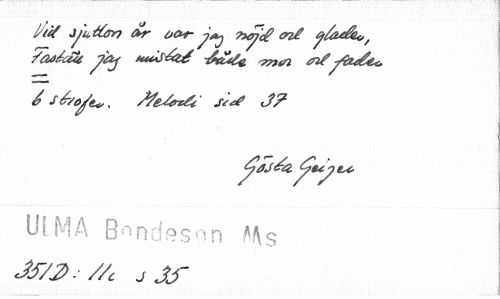 Vid sjutton år var jag nöjd och glader,
Fastän jag mistat både mor och fader
6 strofer. Melodi sid 37
Gösta Geijer
ULMA Bondeson Ms
351D: 11c s 35